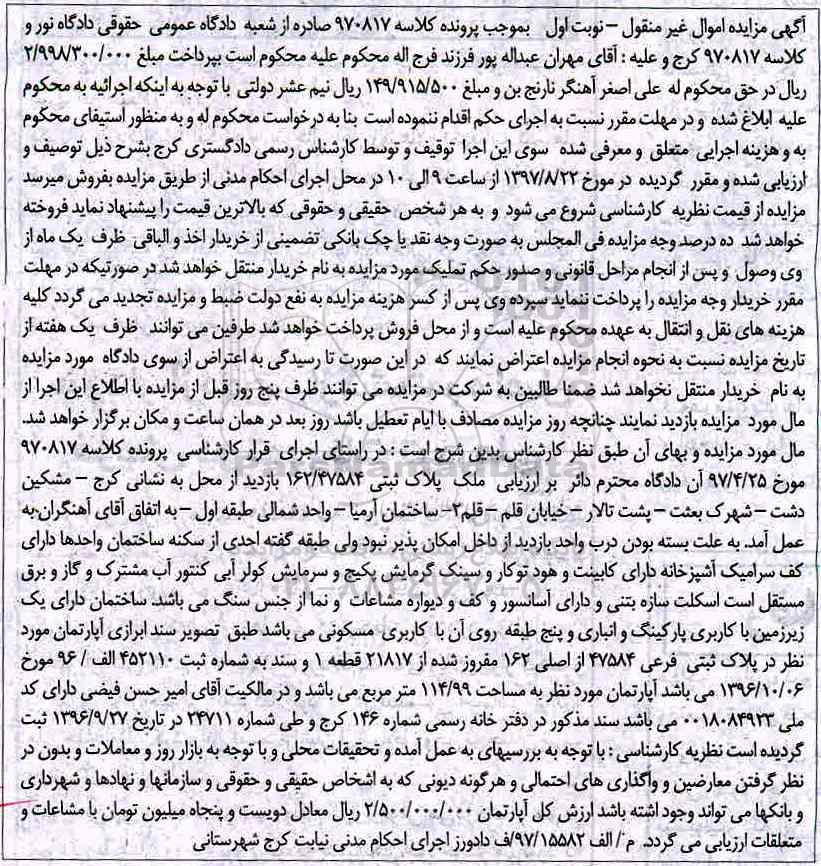 آگهی مزایده اموال غیر منقول – نوبت اول   بموجب پرونده کلاسه ۹۷۰۸۱۷ صادره از شعبه  دادگاه عمومی  حقوقی دادگاه نور و
کلاسه ۹۷۰۸۱۷ کرج و علیه : آقای مهران عبداله پور فرزند فرج اله محکوم علیه محکوم است بپرداخت مبلغ ۲/۹۹۸/۳۰۰/۰۰۰
ریال در حق محکوم له  علی اصغر آهنگر نارنج بن و مبلغ ۱۴۹/۹۱۵/۵۰۰ ریال نیم عشر دولتی  با توجه به اینکه اجرائیه به محکوم
علیه  ابلاغ شده  و در مهلت مقرر نسبت به اجرای حکم اقدام ننموده است  بنا به درخواست محکوم له و به منظور استیفای محکوم
به و هزینه اجرایی  متعلق  و معرفی شده  سوی این اجرا  توقیف و توسط کارشناس رسمی دادگستری کرج بشرح ذیل توصیف و
ارزیابی شده و مقرر  گردیده  در مورخ ۱۳۹۷/۸/۲۲ از ساعت ۹ الی ۱۰ در محل اجرای احکام مدنی از طریق مزایده بفروش میرسد
مزایده از قیمت نظریه  کارشناسی شروع می شود  و  به هر شخص  حقیقی و حقوقی که بالاترین قیمت را پیشنهاد نماید فروخته
خواهد شد  ده درصد وجه مزایده فی المجلس به صورت وجه نقد یا چک بانکی تضمینی از خریدار اخذ و الباقی  ظرف  یک ماه از
وی وصول  و پس از انجام مراحل قانونی و صدور حکم تملیک مورد مزایده به نام خریدار منتقل خواهد شد در صورتیکه در مهلت
مقرر خریدار وجه مزایده را پرداخت ننماید سپرده وی پس از کسر هزینه مزایده به نفع دولت ضبط و مزایده تجدید می گردد کلیه
هزینه های نقل و انتقال به عهده محکوم علیه است و از محل فروش پرداخت خواهد شد طرفین می توانند  ظرف  یک هفته از
تاریخ مزایده نسبت به نحوه انجام مزایده اعتراض نمایند که  در این صورت تا رسیدگی به اعتراض از سوی دادگاه  مورد مزایده
به نام  خریدار منتقل نخواهد شد ضمنا طالبین به شرکت در مزایده می توانند ظرف پنج روز قبل از مزایده با اطلاع این اجرا از
مال مورد  مزایده بازدید نمایند چنانچه روز مزایده مصادف با ایام تعطیل باشد روز بعد در همان ساعت و مکان برگزار خواهد شد.
مال مورد مزایده و بهای آن طبق نظر کارشناس بدین شرح است : در راستای اجرای  قرار کارشناسی  پرونده کلاسه ۹۷۰۸۱۷
مورخ ۹۷/۴/۲۵ آن دادگاه محترم دائر  بر ارزیابی  ملک  پلاک ثبتی ۱۶۲/۴۷۵۸۴ بازدید از محل به نشانی کرج – مشکین
دشت – شهرک بعثت – پشت تالار – خیابان قلم – قلم۳– ساختمان آرمیا – واحد شمالی طبقه اول – به اتفاق آقای آهنگران،به
عمل آمد. به علت بسته بودن درب واحد بازدید از داخل امکان پذیر نبود ولی طبقه گفته احدی از سکنه ساختمان واحدها دارای
کف سرامیک آشپزخانه دارای کابینت و هود توکار و سینک گرمایش پکیج و سرمایش کولر آبی کنتور آب مشترک و گاز و برق
مستقل است اسکلت سازه بتنی و دارای آسانسور و کف و دیواره مشاعات  و نما از جنس سنگ می باشد. ساختمان دارای یک
زیرزمین با کاربری پارکینگ و انباری و پنج طبقه  روی آن با  کاربری  مسکونی می باشد طبق  تصویر سند ابرازی آپارتمان مورد
نظر در پلاک ثبتی  فرعی ۴۷۵۸۴ از اصلی ۱۶۲ مفروز شده از ۲۱۸۱۷ قطعه ۱ و سند به شماره ثبت ۴۵۲۱۱۰ الف / ۹۶ مورخ
۱۳۹۶/۱۰/۰۶ می باشد آپارتمان مورد نظر به مساحت ۱۱۴/۹۹ متر مربع می باشد و در مالکیت آقای امیر حسن فیضی دارای کد
ملی ۰۰۱۸۰۸۴۹۲۳ می باشد سند مذکور در دفتر خانه رسمی شماره ۱۴۶ کرج و طی شماره ۲۴۷۱۱ در تاریخ ۱۳۹۶/۹/۲۷ ثبت
گردیده است نظریه کارشناسی : با توجه به بررسیهای به عمل آمده و تحقیقات محلی و با توجه به بازار روز و معاملات و بدون در
نظر گرفتن معارضین و واگذاری های احتمالی و هرگونه دیونی که به اشخاص حقیقی و حقوقی و سازمانها و نهادها و شهرداری
و بانکها می تواند وجود اشته باشد ارزش کل آپارتمان ۲/۵۰۰/۰۰۰/۰۰۰ ریال معادل دویست و پنجاه میلیون تومان با مشاعات و
متعلقات ارزیابی می گردد.  م / الف ۹۷/۱۵۵۸۲/ف دادورز اجرای احکام مدنی نیابت کرج شهرستانی